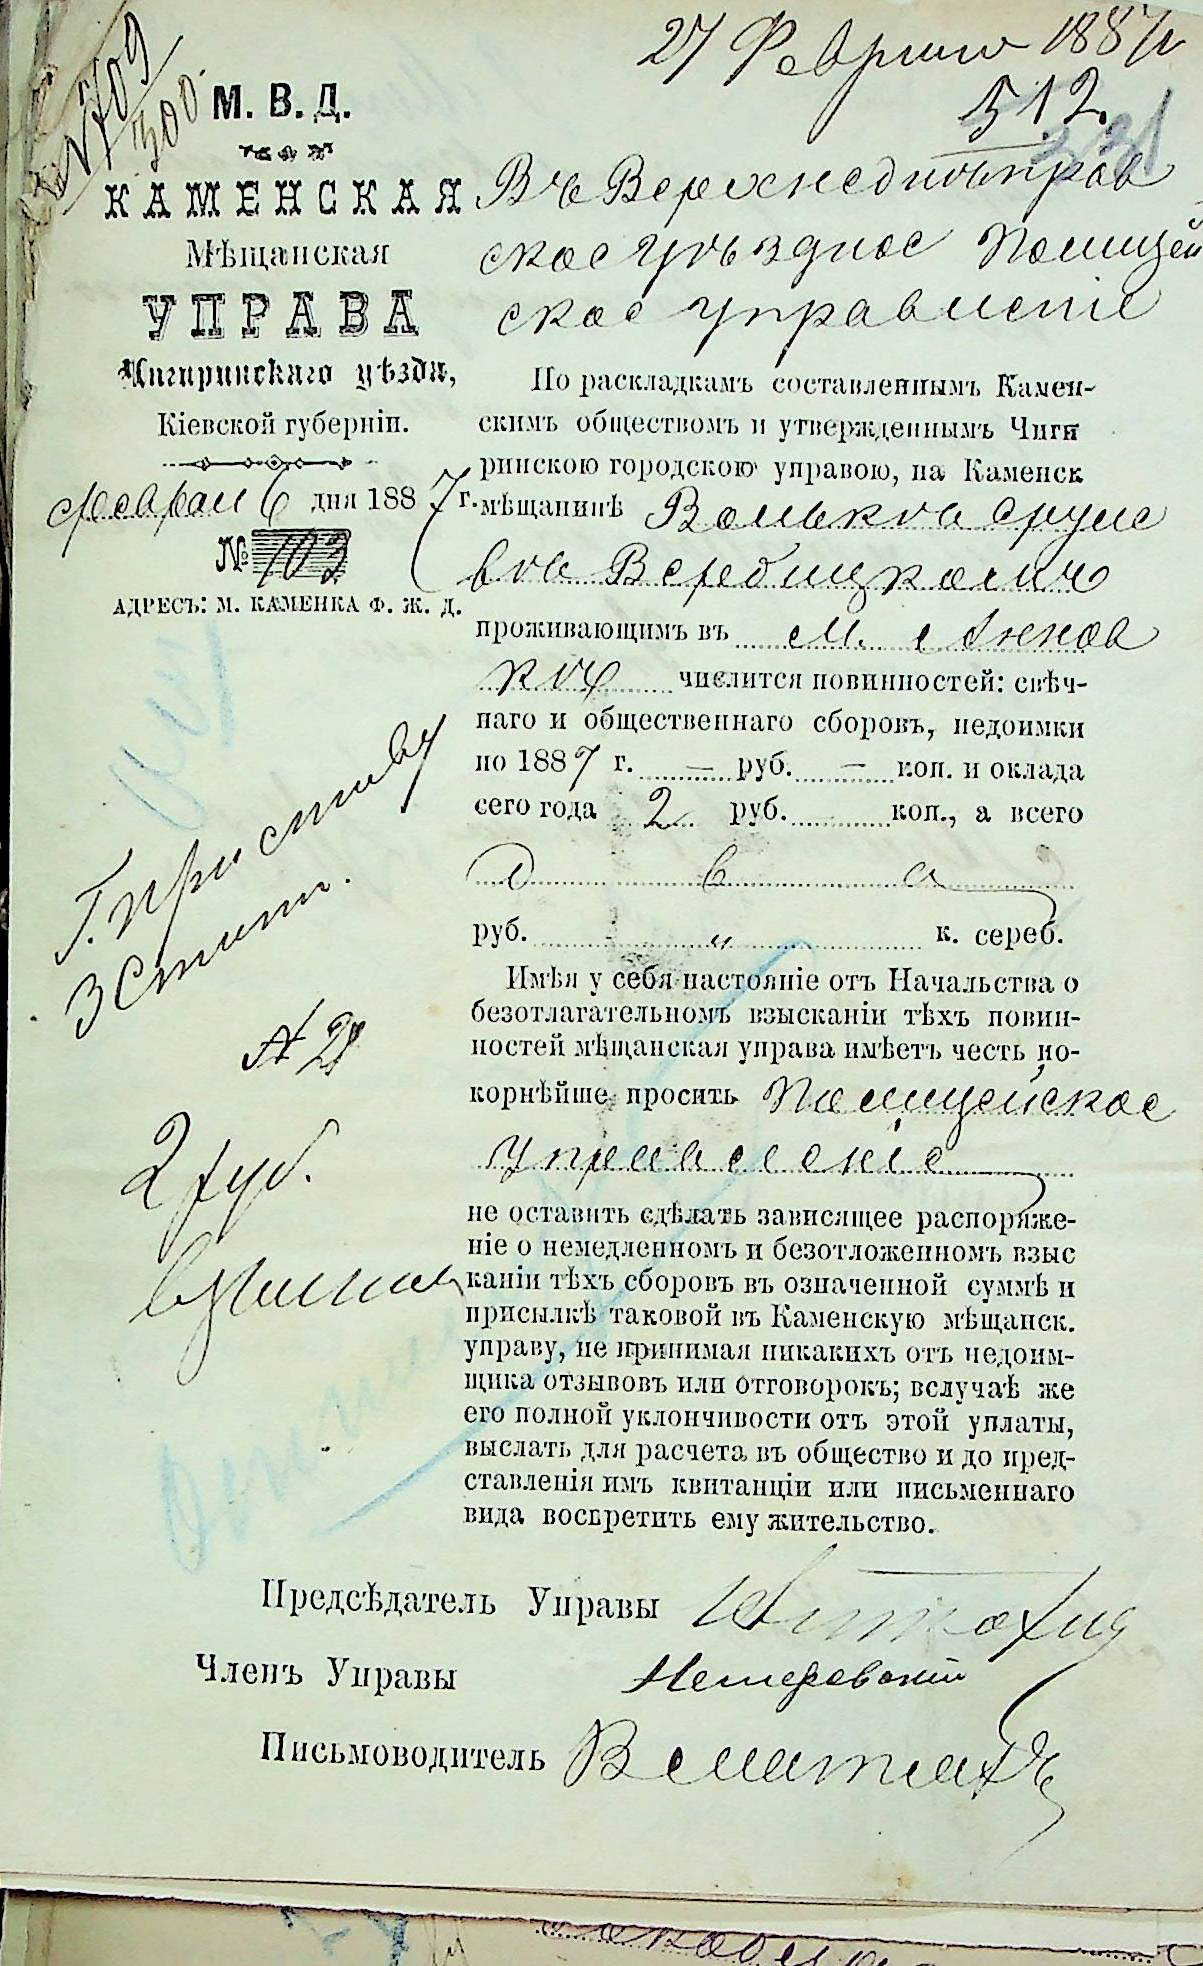 27 Февраля 1887 г
512.
331
№ 709
300
М. В. Д.
КАМЕНСКАЯ
Мѣщанская
УПРАВА
Чигиринскаго уѣзда,
Кіевской губерніи.
февраля 6 дня 1887 г.
№ 103
АДРЕСЪ: М. КАМЕНКА Ф. Ж. Д.
Въ Верхнеднѣпров
ское Уѣздное Полицей
ское Управленіе
По раскладкамъ составленнымъ Камен-
скимъ обществомъ и утвержденнымъ Чиги
ринскою городскою управою, на Каменск
мѣщанинѣ Волько Сруле
вѣ Вербицком
проживающимъ въ м. Аннов
кѣ числится повинностей: свѣч-
наго и общественнаго сборовъ, недоимки
по 1887 г. — руб. — коп. и оклада
сего года 2 руб. коп., а всего
два
руб. „ к. сереб.
Имѣя у себя настояніе отъ Начальства о
безотлагательномъ взысканіи тѣхъ повин-
ностей мѣщанская управа имѣетъ честь по-
корнѣйше просить Полицейское
Управленіе
не оставить сдѣлать зависящее распоряже-
ніе о немедленномъ и безотложенномъ взыс
каніи тѣхъ сборовъ въ означенной суммѣ и
присылкѣ таковой въ Каменскую мѣщанск.
управу, не принимая никакихъ отъ недоим-
щика отзывовъ или отговорокъ; вслучаѣ же
его полной уклончивости отъ этой уплаты,
выслать для расчета въ общество и до пред-
ставленія имъ квитанціи или письменнаго
вида воспретить ему жительство.
Г. Приставу
3 Стана.
2 руб.
взыскан
Предсѣдатель Управы
Членъ Управы
Письмоводитель